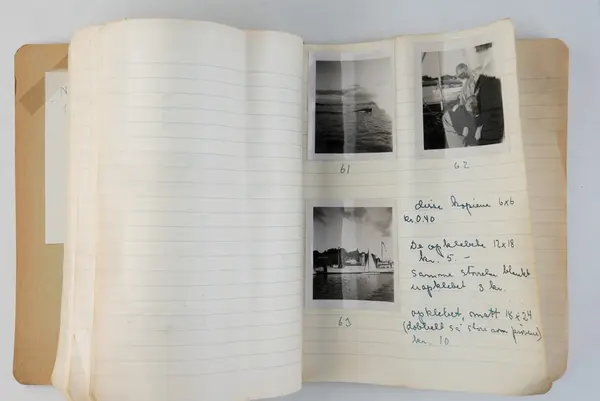 61
62
63
disse kopiene 6x6
kr. 0.40
De opklebete 12x18
kr. 5. -
Samme størrelse blankt
uopklebet 3 kr.
opklebet, matt 18x24
(dobbelt så stor som prøvene)
kr. 10